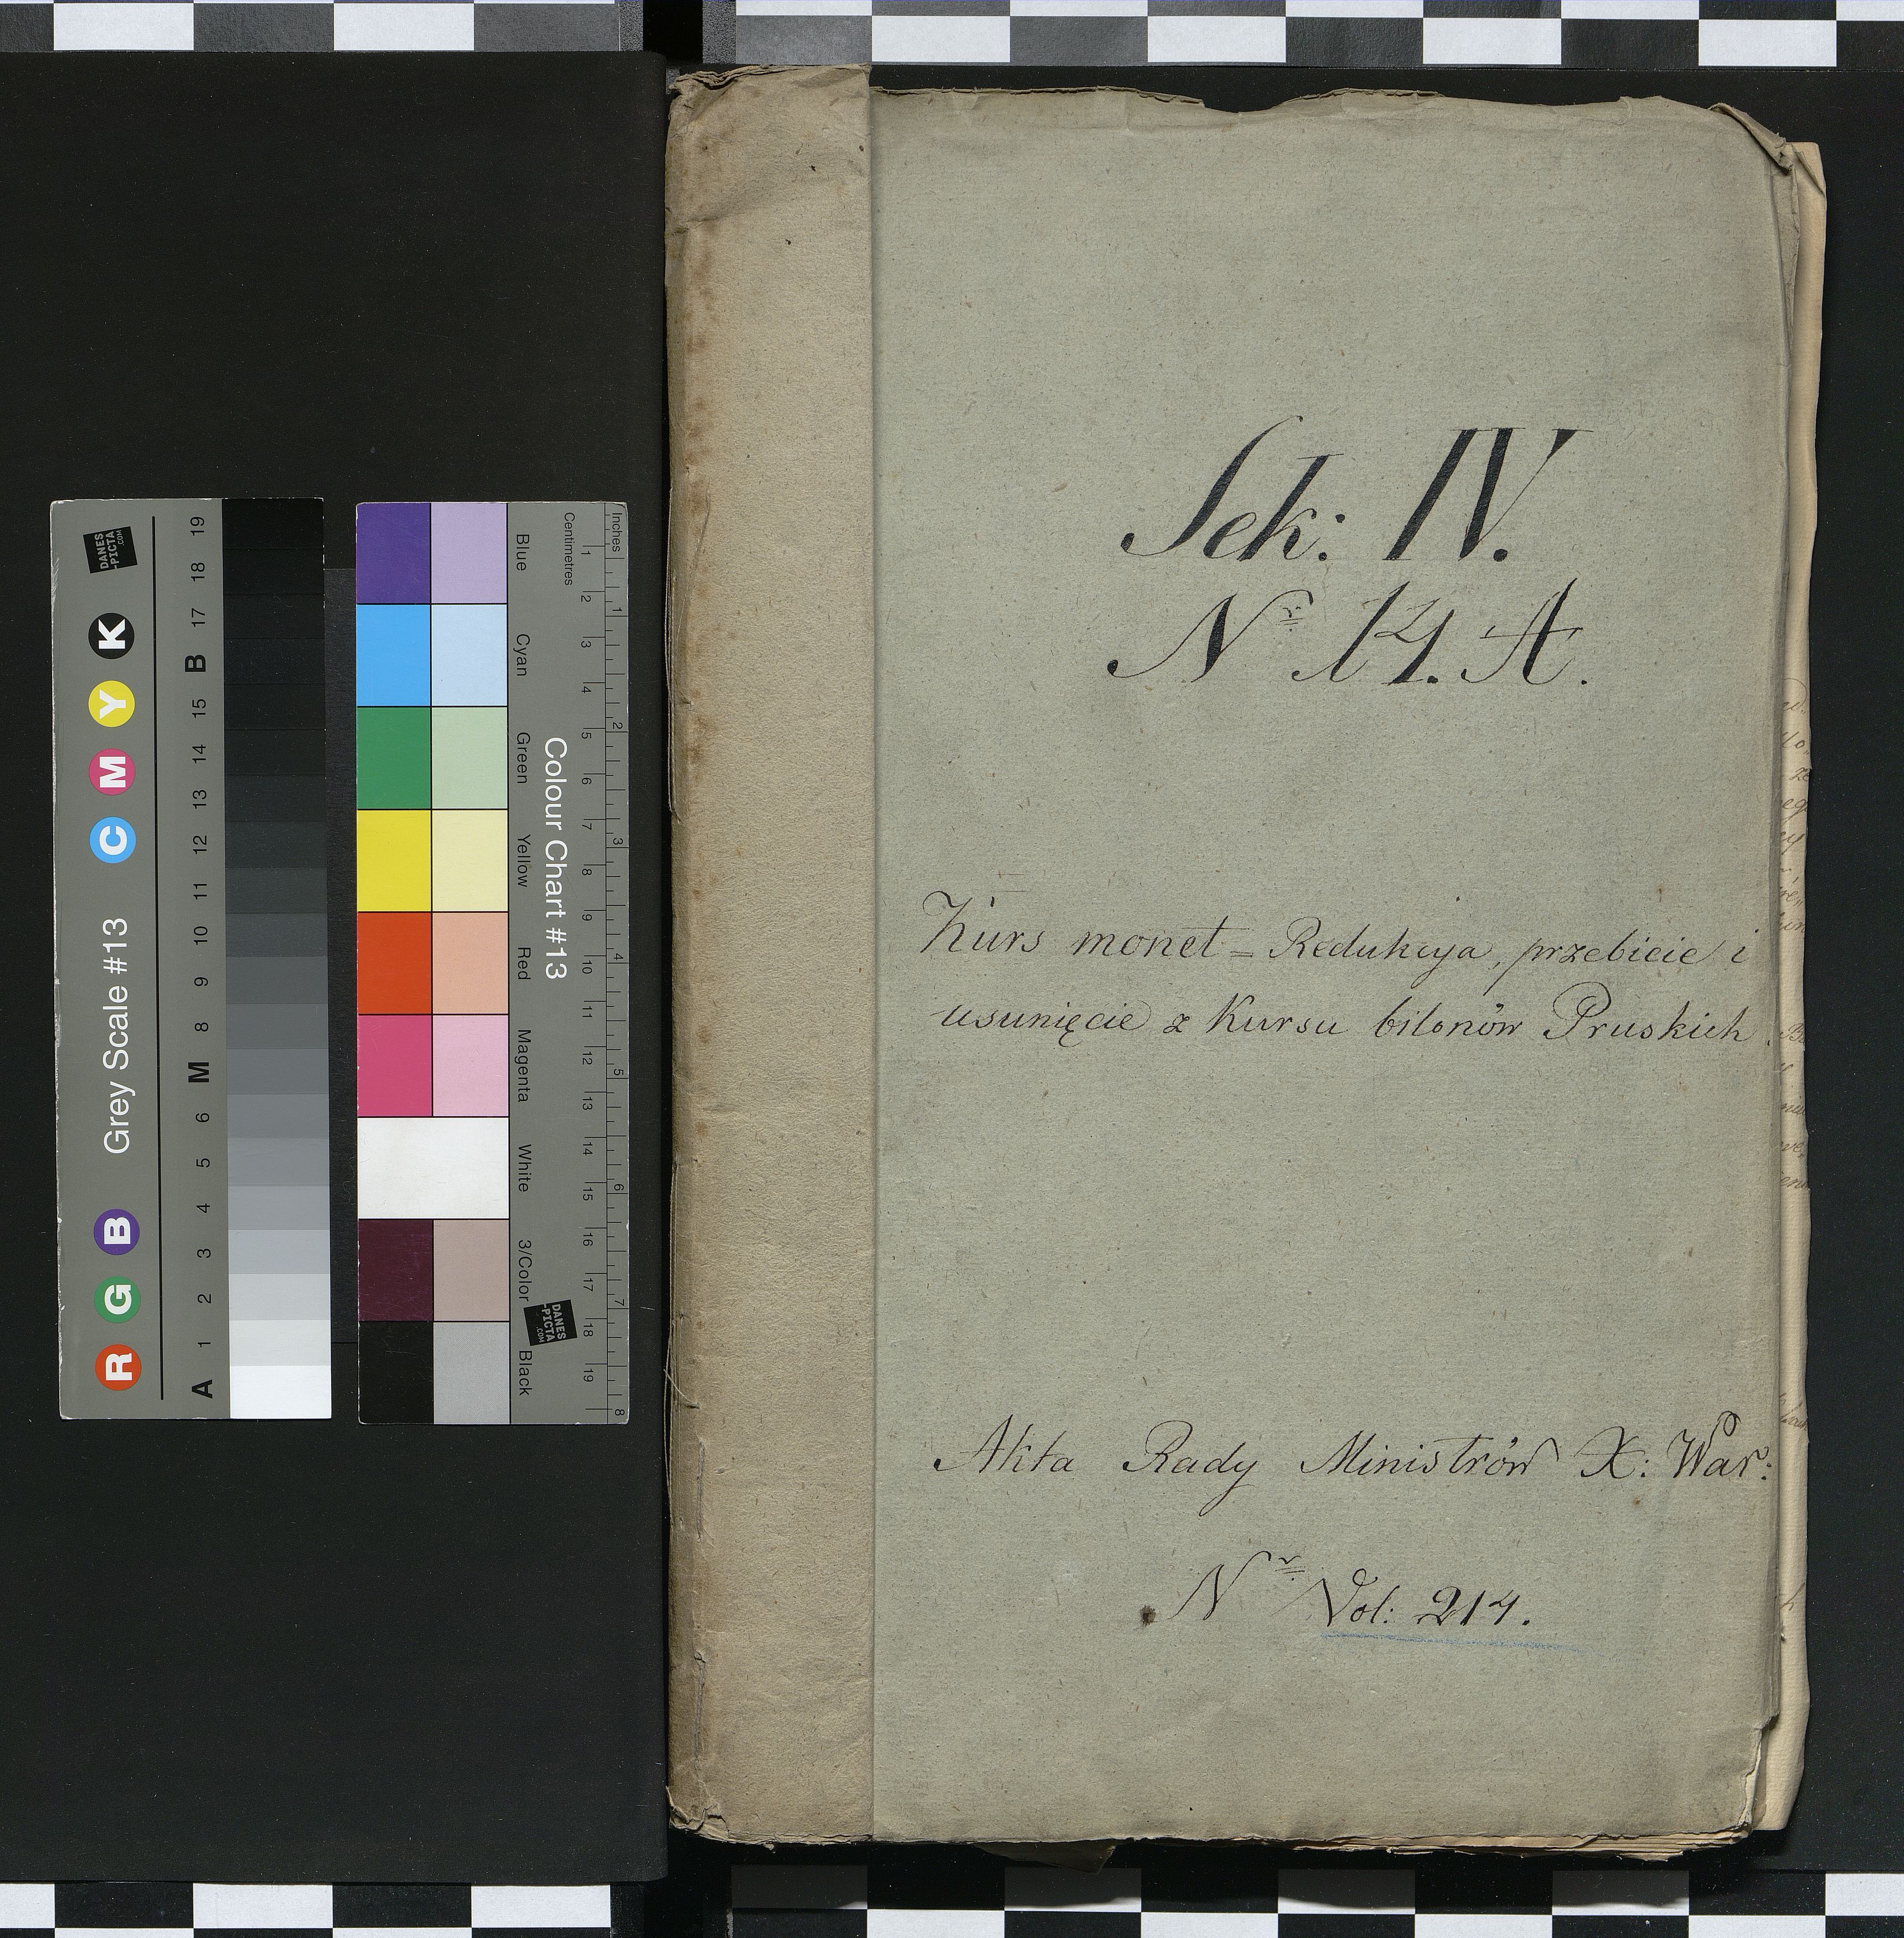 Sek: IV.
Nr 14. A.
Kurs monet = Redukcya, przebicie i
usunięcie z Kursu bilonów Pruskich
Akta Rady Ministrów X: War:
Nr Vol: 214.
Grey Scale #13
R G B C M Y K
A 1 2 3 4 5 6 M 8 9 10 11 12 13 14 15 B 17 18 19
DANES
-PICTA
.COM
Colour Chart #13
Blue Cyan Green Yellow Red Magenta White 3/Color Black
Centimetres 1 2 3 4 5 6 7 8 9 10 11 12 13 14 15 16 17 18 19
Inches 1 2 3 4 5 6 7 8
DANES
-PICTA
.COM